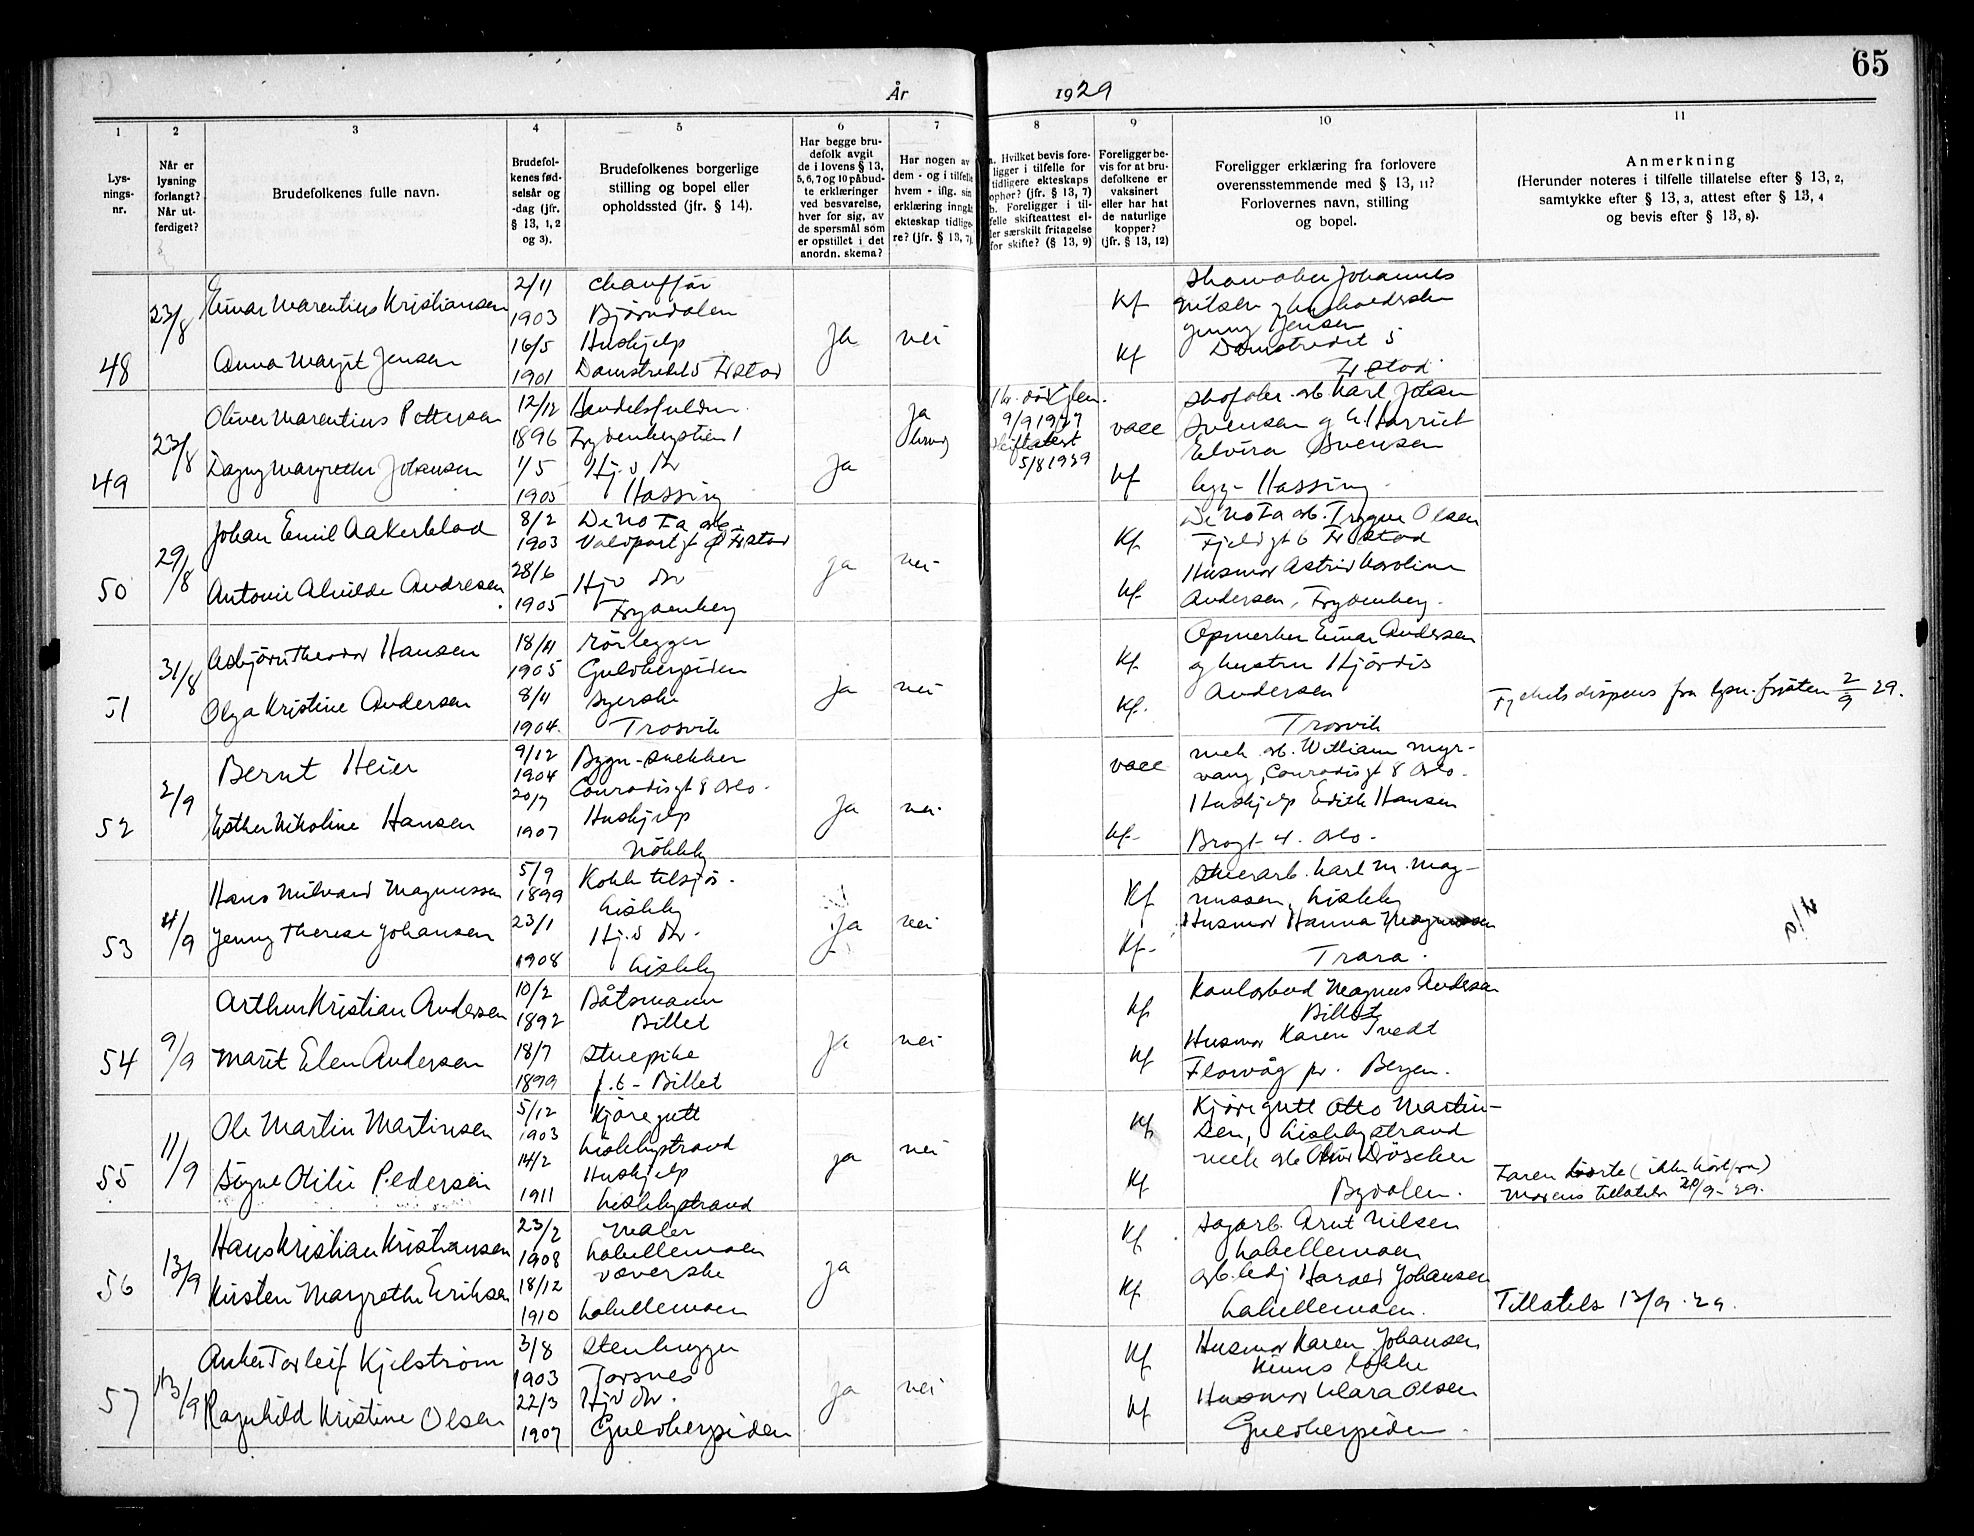 65
År 1929
1
2
3
4
5
6
7
8
9
10
11
Lys-
nings-
nr.
Når er
lysning
forlangt?
Når ut-
ferdiget?
Brudefolkenes fulle navn.
Brudefol-
kenes fød-
selsår og
-dag (jfr.
§ 13, 1, 2
og 3).
Brudefolkenes borgerlige
stilling og bopel eller
opholdssted (jfr. § 14).
Har begge bru-
defolk avgit
de i lovens § 13,
5, 6, 7 og 10 påbud-
te erklæringer
ved besvarelse,
hver for sig, av
de spørsmål som
er opstillet i det
anordn. skema?
Har nogen av
dem - og i tilfelle
hvem - iflg. sin
erklæring inngåt
ekteskap tidlige-
re? (jfr. § 13, 7).
a. Hvilket bevis fore-
ligger i tilfelle for
tidligere ekteskaps
ophør? (jfr. § 13, 7)
b. Foreligger i til-
felle skifteattest el-
ler særskilt fritagelse
for skifte? (§ 13, 9)
Foreligger be-
vis for at bru-
defolkene er
vaksinert
eller har hat
de naturlige
kopper?
(jfr. § 13, 12)
Foreligger erklæring fra forlovere
overensstemmende med § 13, 11?
Forlovernes navn, stilling
og bopel.
Anmerkning
(Herunder noteres i tilfelle tillatelse efter § 13, 2,
samtykke efter § 13, 3, attest efter § 13, 4
og bevis efter § 13, 8).
48
23/8
Einar Marentius Kristiansen
Anna Margit Jensen
2/11
1903
16/5
1901
Chauffør
Bjørndalen
Hushjelp
Damstredet 5 Frstad
Ja
nei
Kf
Kf
Johannes
Nilsen og
Jenny Jensen
Damstredet 5
Frstad
49
23/8
Oliver Marentius Pettersen
Dagny Margrethe Johansen
12/12
1896
1/5
1905
Frydenbergstien 1
Hj. v Mor
Hassing
Ja
Ja
9/9 1927
Skifteatest
5/8 1929
vacc
Kf
Karl Johan
Svensen og h. Harriet
Elvira Svensen
Hassing
50
29/8
Johan Emil Aakerblad
Antonie Alvilde Andresen
8/2
1903
28/6
1905
De No Fa arb.
Frstad
Hj v Mor
Frydenberg
ja
nei
Kf
Kf
De No Fa arb. Trygve Olsen
Fjeldgt 6 Frstad
Husmor Astrid Karoline
Andersen, Frydenberg.
51
31/8
Asbjørn Theodor Hansen
Olga Kristine Andersen
18/11
1905
8/11
1904.
rørlegger
Guldbergsiden
syerske
Trosvik
ja
nei
Kf
Kf.
Opmerker Einar Andersen
og hustru Hjørdis
Andersen
Trosvik
Fylkets dispens fra lysn. fristen 2/9 29.
52
2/9
Bernt Heier
Esther Nikoline Hansen
9/12
1904
20/7
1907
Bygn-snekker
Conradisgt 8 Oslo.
Hushjelp
Nøkleby
Ja
nei
vacc
Kf
mek arb. William Myr-
vang, Conradisgt 8 Oslo.
Hushjelp Edith Hansen
Brogt 4. Oslo.
53
4/9
Hans Milvard Magnussen
Jenny Therese Johansen
5/9
1899
23/1
1908
Kokk tilsjøs.
Lisleby
Hj. v Mor.
Lisleby
Ja
nei
Kf
Kf
Karl M. Mag-
nussen, Lisleby
Husmor Hanna Magnussen
Trara.
54
9/9
Arthur Kristian Andersen
Marit Elen Andersen
10/2
1892
18/7
1899
Båtsmann
Billet
Stuepike
f. t - Billet
Ja
nei
Kf
Kf
Magnus Andersen
Billet
Husmor Karen Tvedt
Florvåg pr. Bergen.
55
11/9
Ole Martin Martinsen
Signe Otilie Pedersen
5/12
1903
14/2
1911
Kjøregutt
Lislebystrand
Hushjelp
Lislebystrand
ja
nei
Kf
Kf
Kjøregutt Otto Martin-
sen, Lislebystrand
mek arb
Bydalen.
Faren borte (ikke hørt fra)
Morens tillatelse 20/9-29.
56
13/9
Hans Kristian Kristiansen
Kirsten Margrethe Eriksen
23/2
1908
18/12
1910
Maler
Labellemoen
Veverske
Labellemoen
ja
Kf
Kf
Sagarb. Arnt Nilsen
Labellemoen
arb. Harald Johansen
Labellemoen.
Tillatels 13/9-29.
57
13/9
Anker Torleif Kjelstrøm
Ragnhild Kristine Olsen
3/8
1903
22/3
1907
Stenhugger
Torsnes
Hj v Mor.
Guldbergsiden
Ja
nei
Kf
Kf
Husmor Karen Johansen
Husmor Klara Olsen
Guldbergsiden.